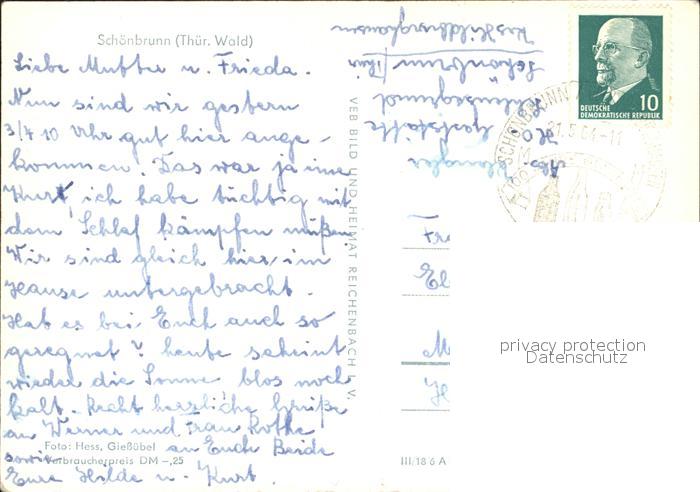 Schönbrunn (Thür. Wald)
Liebe Mutter u. Frieda.
Nun sind wir gestern
3/4 10 Uhr gut hier ange-
kommen. Das war ja eine
ich habe tüchtig mit
dem Schlaf kämpfen müßen.
Wir sind gleich hier im
Hause untergebracht.
Hat es bei Euch auch so
geregnet? heute scheint
wieder die Sonne blos noch
kalt. Recht herzliche Grüße
an Werner und Frau Rothe
sowie an Euch Beide
Eure Hilde u. Kurt.
Foto: Hess, Gießübel
Verbraucherpreis DM -,25
VEB BILD UND HEIMAT REICHENBACH I. V.
III/18 6 A
Abs.
Gaststätte
Schönbrunn / Thür
Krs Hildburghausen
DEUTSCHE
DEMOKRATISCHE REPUBLIK
10
SCHÖNBRUNN
Fr
El
M
H
privacy protection
Datenschutz